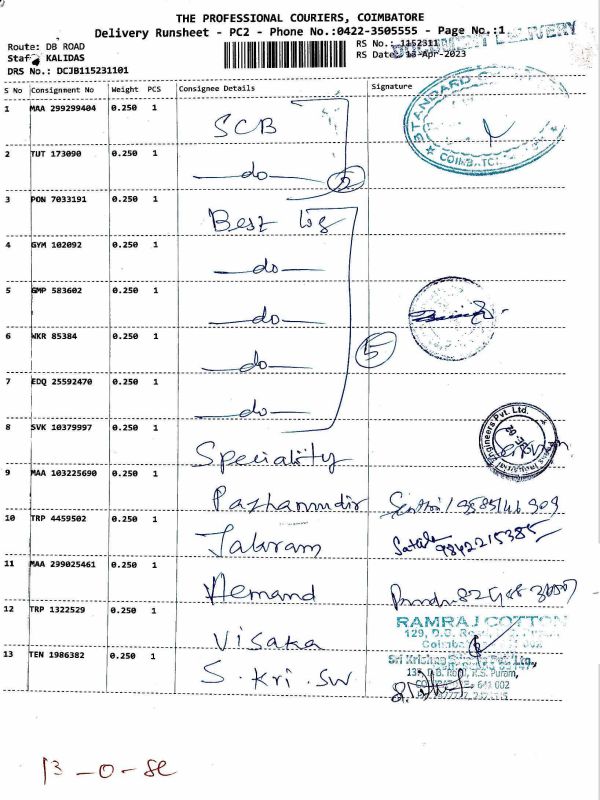 THE PROFESSIONAL COURIERS, COIMBATORE
Delivery Runsheet - PC2 - Phone No.:0422-3505555 - Page No.:1
Route: DB ROAD
RS No.: 1152311
DOCUMENT DELIVERY
Staff KALIDAS
RS Date: 13-Apr-2023
DRS No.: DCJB115231101
S No Consignment No Weight PCS Consignee Details Signature
1 MAA 299299404 0.250 1 SCB
STANDARD
COIMBATORE
2 TUT 173090 0.250 1 do
2
3 PON 7033191 0.250 1 Best
4 GYM 102092 0.250 1 do
5 GMP 583602 0.250 1 do
6 WKR 85384 0.250 1 do
5
7 EDQ 25592470 0.250 1 do
8 SVK 10379997 0.250 1 Speciality
Engineers Pvt. Ltd.
9 MAA 103225690 0.250 1 Pazhamudir
10 TRP 4459502 0.250 1 9842215385
11 MAA 299025461 0.250 1
12 TRP 1322529 0.250 1 Visaka
RAMRAJ COTTON
129, D.B.
13 TEN 1986382 0.250 1 S. Kri. SW
Sri Krishna
R.S. Puram,
641 002
13 - 0 - se